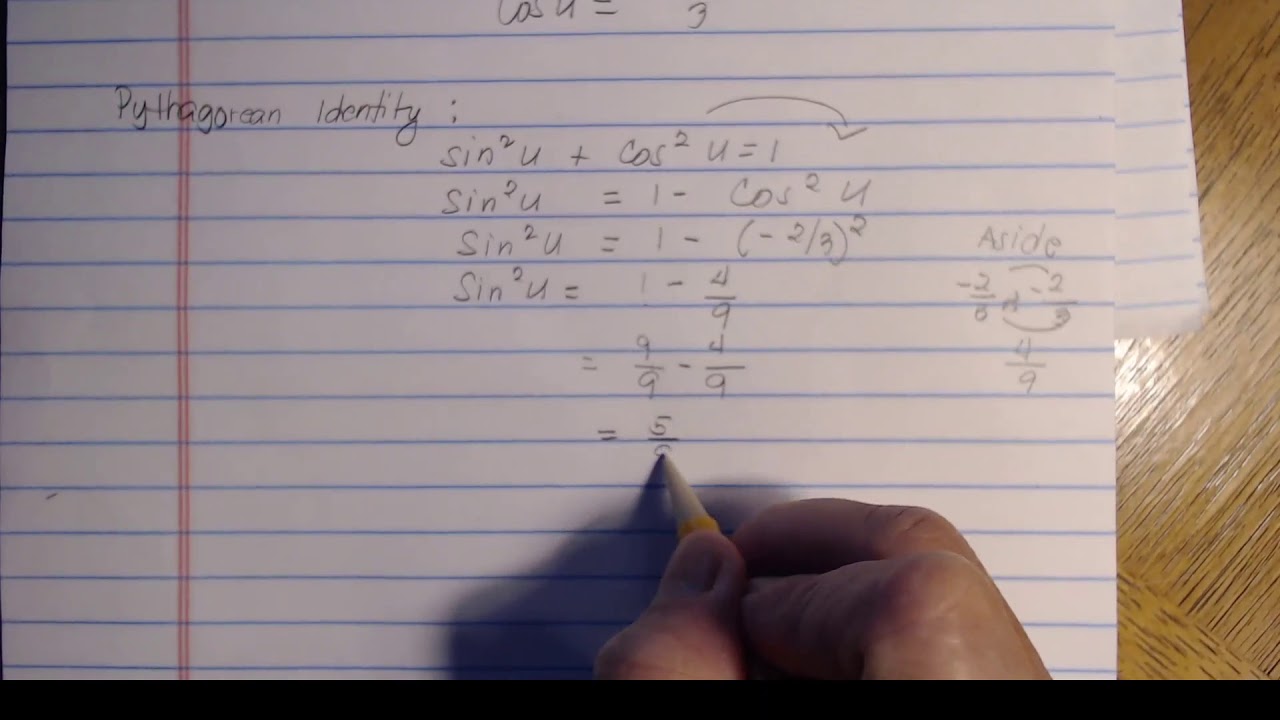 Cos U = 3
Pythagorean Identity :
sin²u + cos² u = 1
sin²u = 1 - cos² u
sin²u = 1 - (-2/3)²
sin²u = 1 - 4/9
= 9/9 - 4/9
= 5/9
Aside
-2/3 -2/3
4/9